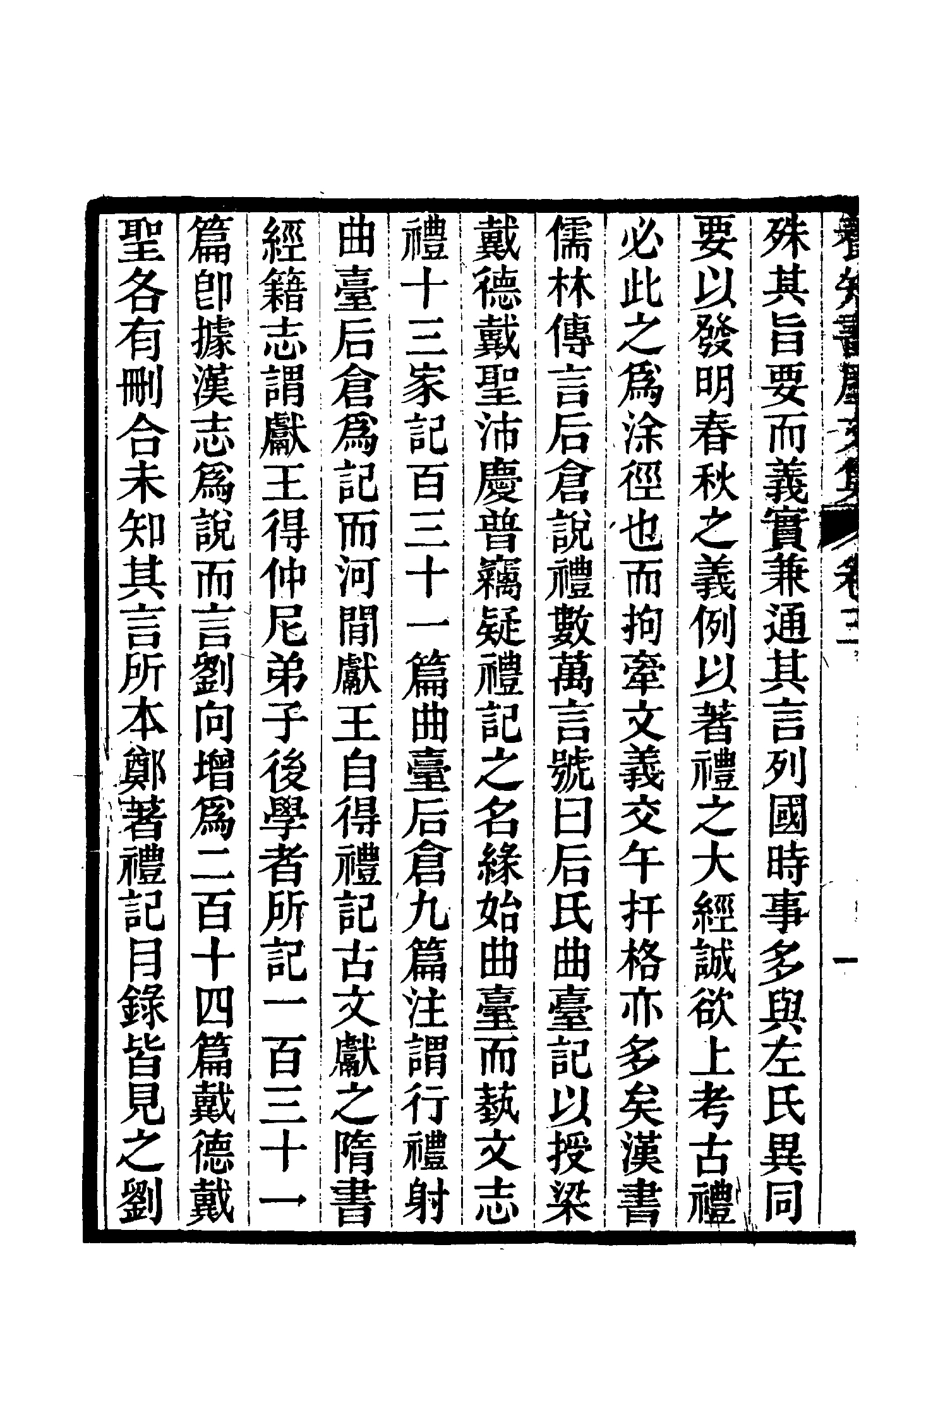 養知書屋文集 卷三 一
殊其旨要而義實兼通其言列國時事多與左氏異同
要以發明春秋之義例以著禮之大經誠欲上考古禮
必此之爲涂徑也而拘牽文義交午扞格亦多矣漢書
儒林傳言后倉說禮數萬言號曰后氏曲臺記以授梁
戴德戴聖沛慶普竊疑禮記之名緣始曲臺而蓺文志
禮十三家記百三十一篇曲臺后倉九篇注謂行禮射
曲臺后倉爲記而河閒獻王自得禮記古文獻之隋書
經籍志謂獻王得仲尼弟子後學者所記一百三十一
篇卽據漢志爲說而言劉向增爲二百十四篇戴德戴
聖各有刪合未知其言所本鄭著禮記目錄皆見之劉